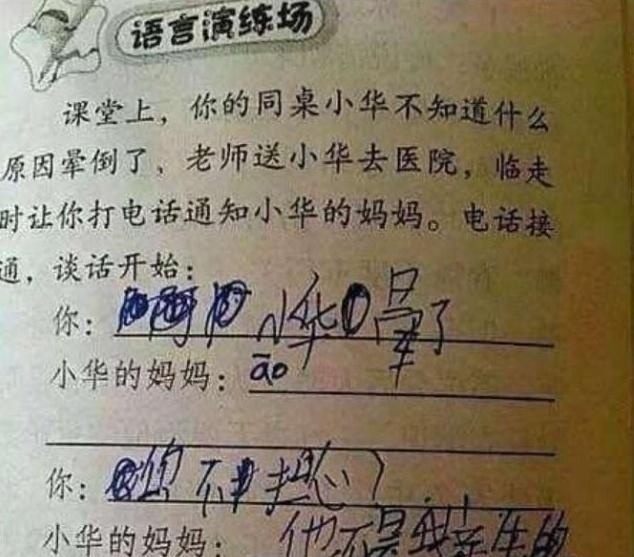 语言演练场
课堂上，你的同桌小华不知道什么
原因晕倒了、老师送小华去医院，临走
时让你打电话通知小华的妈妈。电话接
通，谈话开始：
你：小华晕了
小华的妈妈：āo
你：您不担心？
小华的妈妈：他不是我亲生的